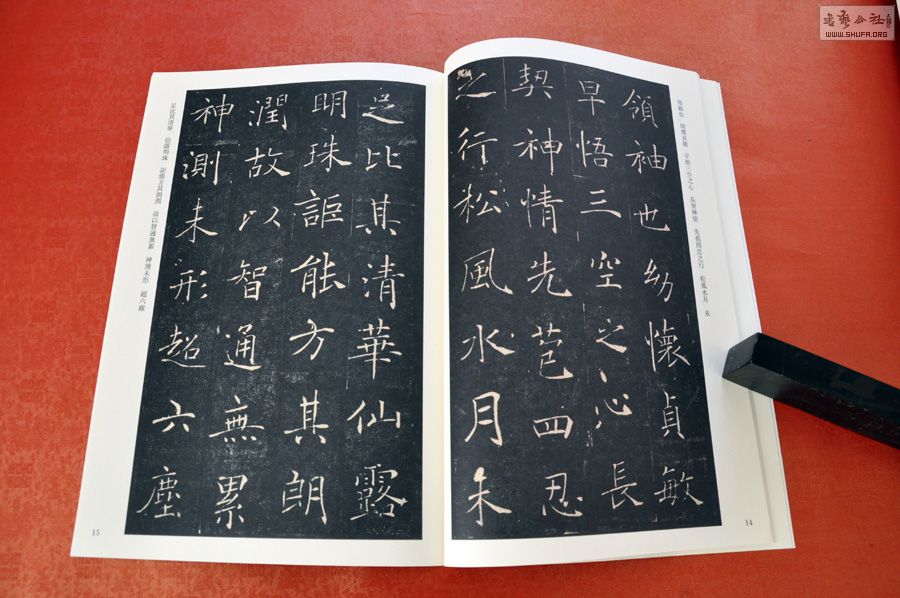 領袖也 幼懷貞敏 早悟三空之心 長契神情 先苞四忍之行 松風水月 未
領袖也幼懷貞敏
早悟三空之心長
契神情先苞四忍
之行松風水月未
14
足比其清華仙露
明珠詎能方其朗
潤故以智通無累
神測未形超六塵
足比其清華 仙露明珠 詎能方其朗潤 故以智通無累 神測未形 超六塵
15
書藝公社
WWW.SHUFA.ORG